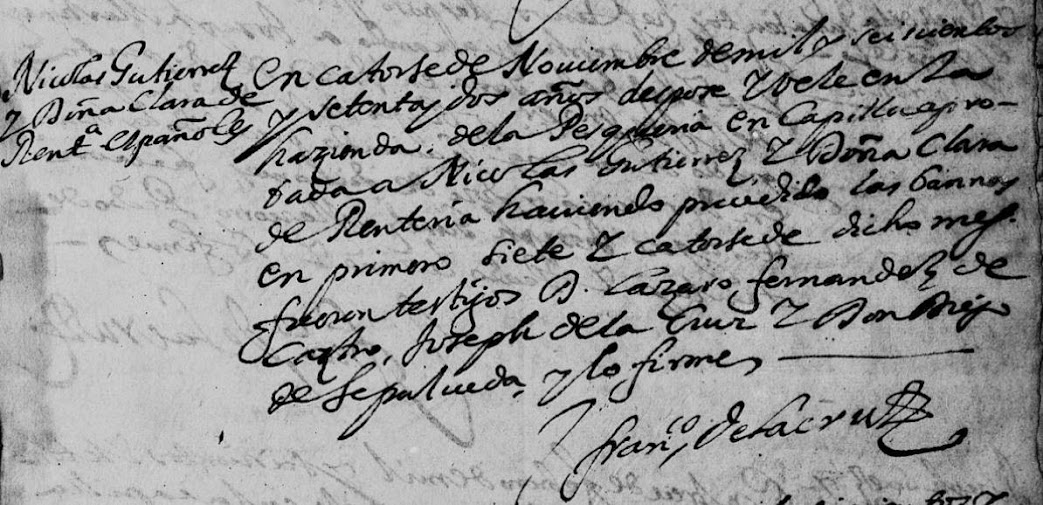 Nicolas Gutierrez
y Doña Clara de
Rentª españoles
en catorse de Noviembre de mil y seiscientos
y setenta y dos años despose y vele en la
hazienda de la Pesqueria en Capilla apro-
vada a Nicolas Gutierrez y Doña Clara
de Renteria haviendo presedido las bannas
en primero siete y catorse de dicho mes.
fueron testijos D. Lazaro fernandez de
Castro, Joseph de la Cruz y Don Diego
de Sepulveda, y lo firme
franco de la cruz